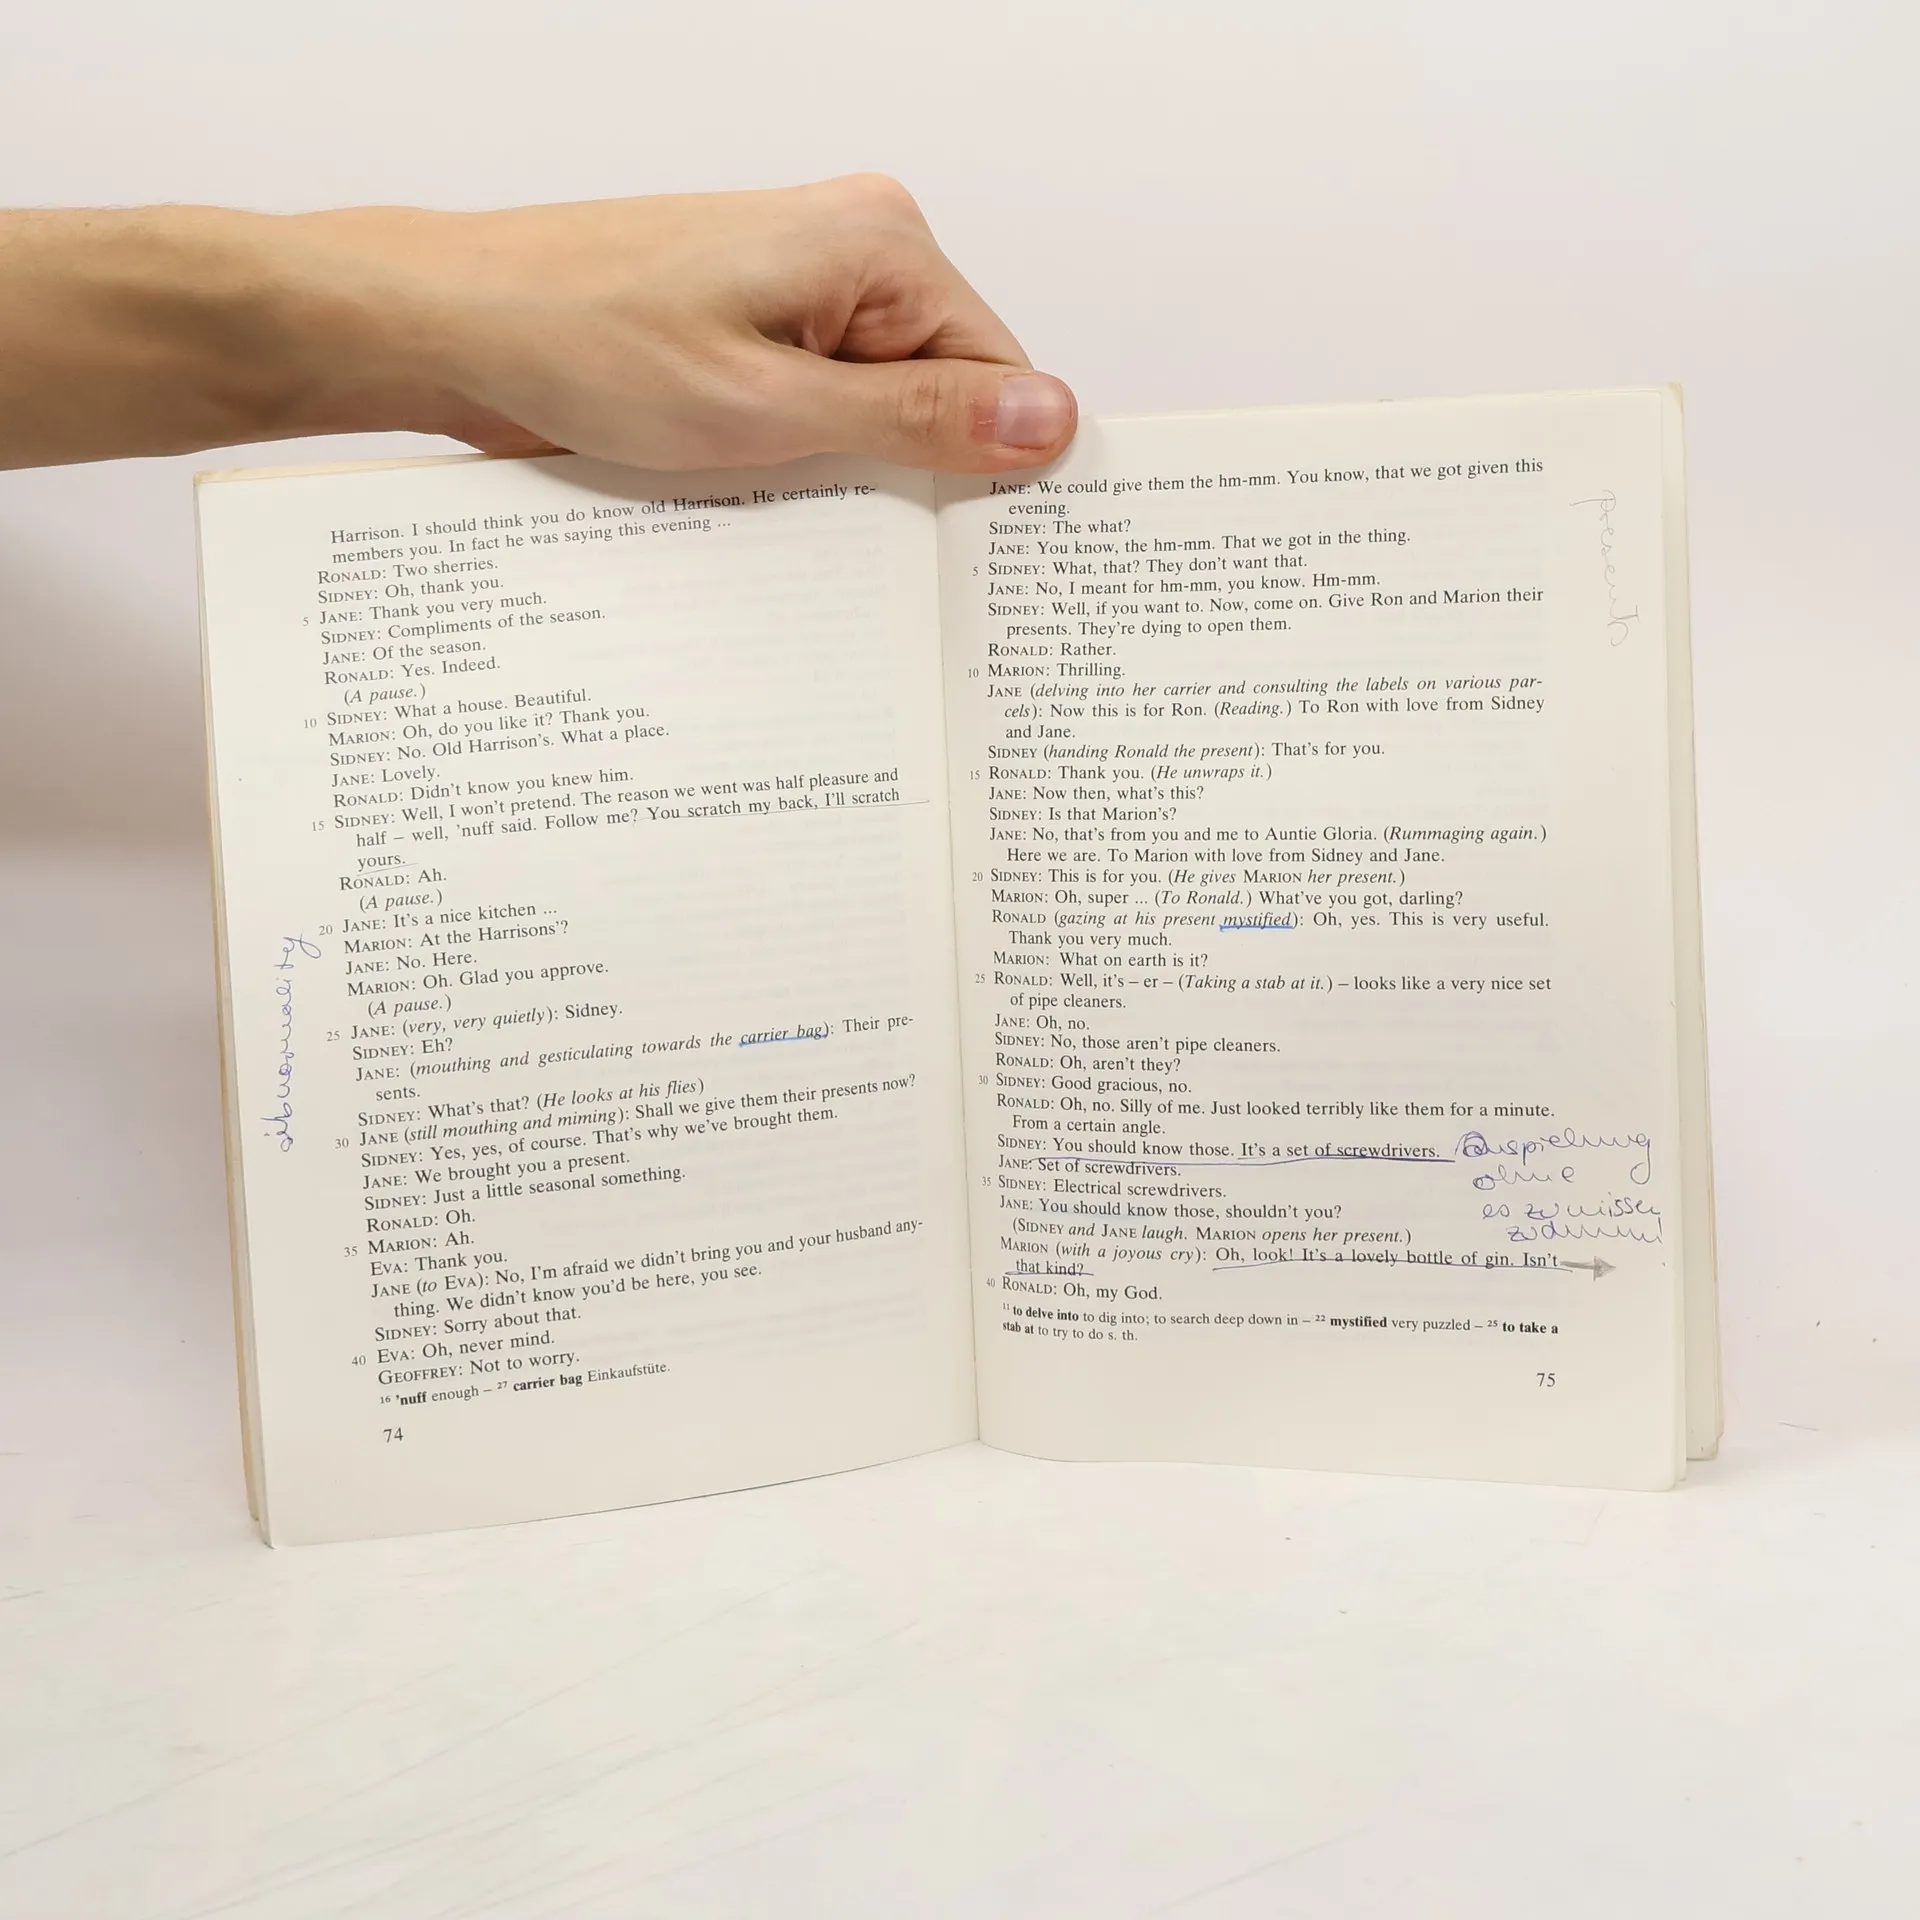 Harrison. I should think you do know old Harrison. He certainly re-
members you. In fact he was saying this evening ...
RONALD: Two sherries.
SIDNEY: Oh, thank you.
5 JANE: Thank you very much.
SIDNEY: Compliments of the season.
JANE: Of the season.
RONALD: Yes. Indeed.
(A pause.)
10 SIDNEY: What a house. Beautiful.
MARION: Oh, do you like it? Thank you.
SIDNEY: No. Old Harrison's. What a place.
JANE: Lovely.
RONALD: Didn't know you knew him.
15 SIDNEY: Well, I won't pretend. The reason we went was half pleasure and
half – well, 'nuff said. Follow me? You scratch my back, I'll scratch
yours.
RONALD: Ah.
(A pause.)
20 JANE: It's a nice kitchen ...
MARION: At the Harrisons'?
JANE: No. Here.
MARION: Oh. Glad you approve.
(A pause.)
25 JANE: (very, very quietly): Sidney.
SIDNEY: Eh?
JANE: (mouthing and gesticulating towards the carrier bag): Their pre-
sents.
SIDNEY: What's that? (He looks at his flies)
30 JANE (still mouthing and miming): Shall we give them their presents now?
SIDNEY: Yes, yes, of course. That's why we've brought them.
JANE: We brought you a present.
SIDNEY: Just a little seasonal something.
RONALD: Oh.
35 MARION: Ah.
EVA: Thank you.
JANE (to EVA): No, I'm afraid we didn't bring you and your husband any-
thing. We didn't know you'd be here, you see.
SIDNEY: Sorry about that.
40 EVA: Oh, never mind.
GEOFFREY: Not to worry.
16 'nuff enough – 27 carrier bag Einkaufstüte.
74
JANE: We could give them the hm-mm. You know, that we got given this
evening.
SIDNEY: The what?
JANE: You know, the hm-mm. That we got in the thing.
5 SIDNEY: What, that? They don't want that.
JANE: No, I meant for hm-mm, you know. Hm-mm.
SIDNEY: Well, if you want to. Now, come on. Give Ron and Marion their
presents. They're dying to open them.
RONALD: Rather.
10 MARION: Thrilling.
JANE (delving into her carrier and consulting the labels on various par-
cels): Now this is for Ron. (Reading.) To Ron with love from Sidney
and Jane.
SIDNEY (handing Ronald the present): That's for you.
15 RONALD: Thank you. (He unwraps it.)
JANE: Now then, what's this?
SIDNEY: Is that Marion's?
JANE: No, that's from you and me to Auntie Gloria. (Rummaging again.)
Here we are. To Marion with love from Sidney and Jane.
20 SIDNEY: This is for you. (He gives MARION her present.)
MARION: Oh, super ... (To Ronald.) What've you got, darling?
RONALD (gazing at his present mystified): Oh, yes. This is very useful.
Thank you very much.
MARION: What on earth is it?
25 RONALD: Well, it's – er – (Taking a stab at it.) – looks like a very nice set
of pipe cleaners.
JANE: Oh, no.
SIDNEY: No, those aren't pipe cleaners.
RONALD: Oh, aren't they?
30 SIDNEY: Good gracious, no.
RONALD: Oh, no. Silly of me. Just looked terribly like them for a minute.
From a certain angle.
SIDNEY: You should know those. It's a set of screwdrivers.
JANE: Set of screwdrivers.
35 SIDNEY: Electrical screwdrivers.
JANE: You should know those, shouldn't you?
(SIDNEY and JANE laugh. MARION opens her present.)
MARION (with a joyous cry): Oh, look! It's a lovely bottle of gin. Isn't
that kind?
40 RONALD: Oh, my God.
11 to delve into to dig into; to search deep down in – 22 mystified very puzzled – 25 to take a
stab at to try to do s. th.
75
presents
Anspielung
ohne
es zu wissen
zu dumm!